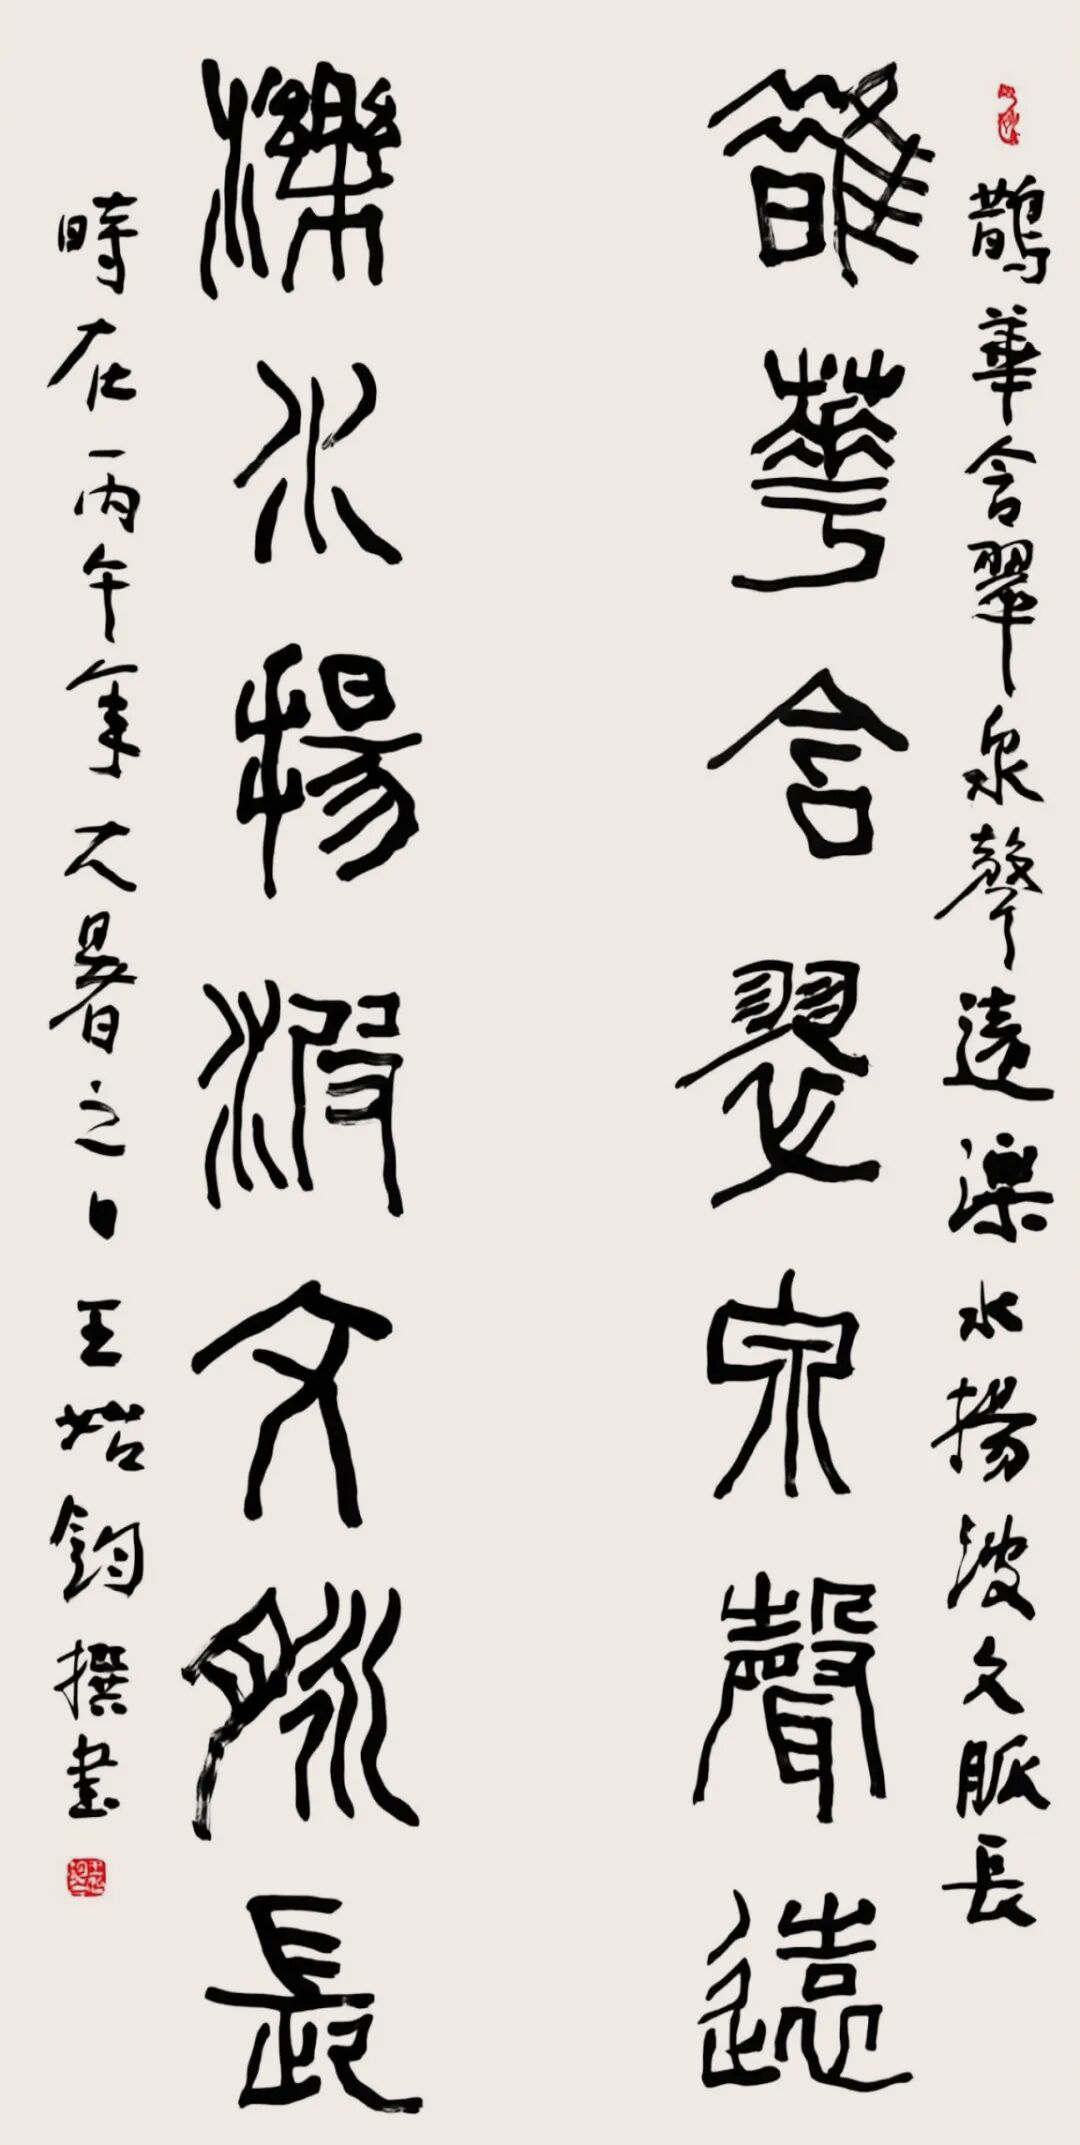 鵲華含翠泉聲遠濼水揚波文脈長
鵲華含翠泉聲遠
濼水揚波文脈長
時在丙午年大暑之日王始鈞撰書